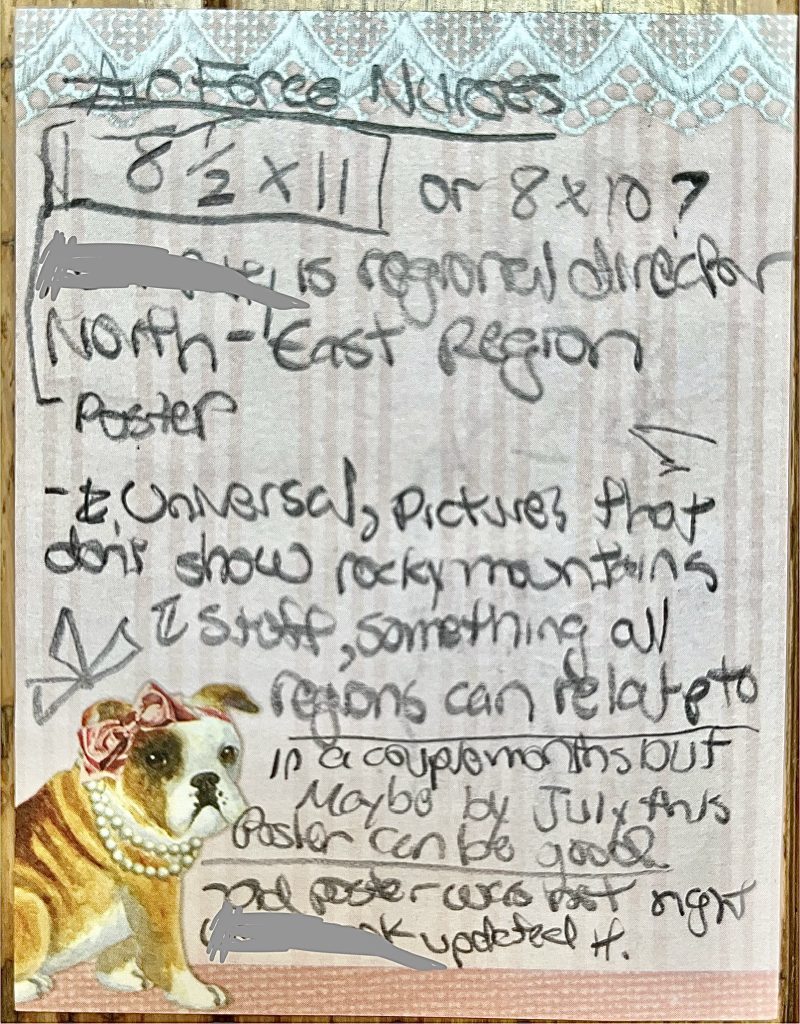 Air Force Nurses
8 1/2 x 11 or 8 x 10?
is regional director
North-East Region
- Poster
- Universal, pictures that
don't show rocky mountains
& stuff, something all
regions can relate to
in a couple months but
Maybe by July this
Poster can be good
poster was not right
updated it.